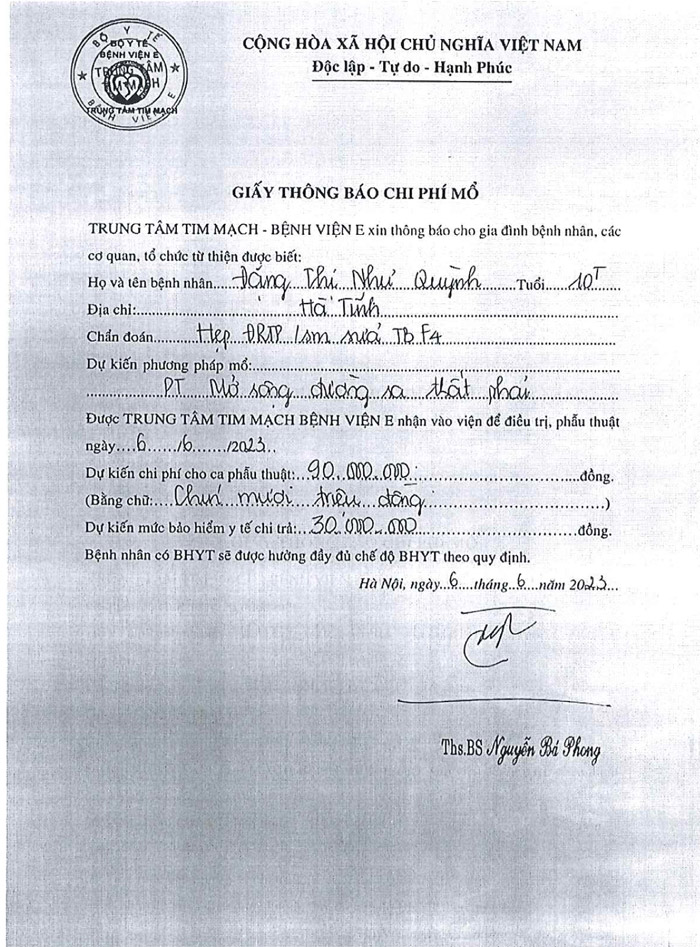 BỘ Y TẾ
BỘ Y TẾ
BỆNH VIỆN E
TRUNG TÂM
TIM MẠCH
TRUNG TÂM TIM MẠCH
BỆNH VIỆN E
CỘNG HÒA XÃ HỘI CHỦ NGHĨA VIỆT NAM
Độc lập - Tự do - Hạnh Phúc
GIẤY THÔNG BÁO CHI PHÍ MỔ
TRUNG TÂM TIM MẠCH - BỆNH VIỆN E xin thông báo cho gia đình bệnh nhân, các
cơ quan, tổ chức từ thiện được biết:
Họ và tên bệnh nhân....Đặng Thị Như Quỳnh......Tuổi....10T
Địa chỉ:....Hà Tĩnh....
Chẩn đoán....Hẹp ĐRTP / sm sửa TB F4
Dự kiến phương pháp mổ:....
....PT Mở rộng đường ra thất phải....
Được TRUNG TÂM TIM MẠCH BỆNH VIỆN E nhận vào viện để điều trị, phẫu thuật
ngày....6..../6..../2023...
Dự kiến chi phí cho ca phẫu thuật:..90.000.000....đồng.
(Bằng chữ:...Chín mươi triệu đồng....)
Dự kiến mức bảo hiểm y tế chi trả:..30.000.000....đồng.
Bệnh nhân có BHYT sẽ được hưởng đầy đủ chế độ BHYT theo quy định.
Hà Nội, ngày..6....tháng..6...năm 2023...
Ths.BS Nguyễn Bá Phong